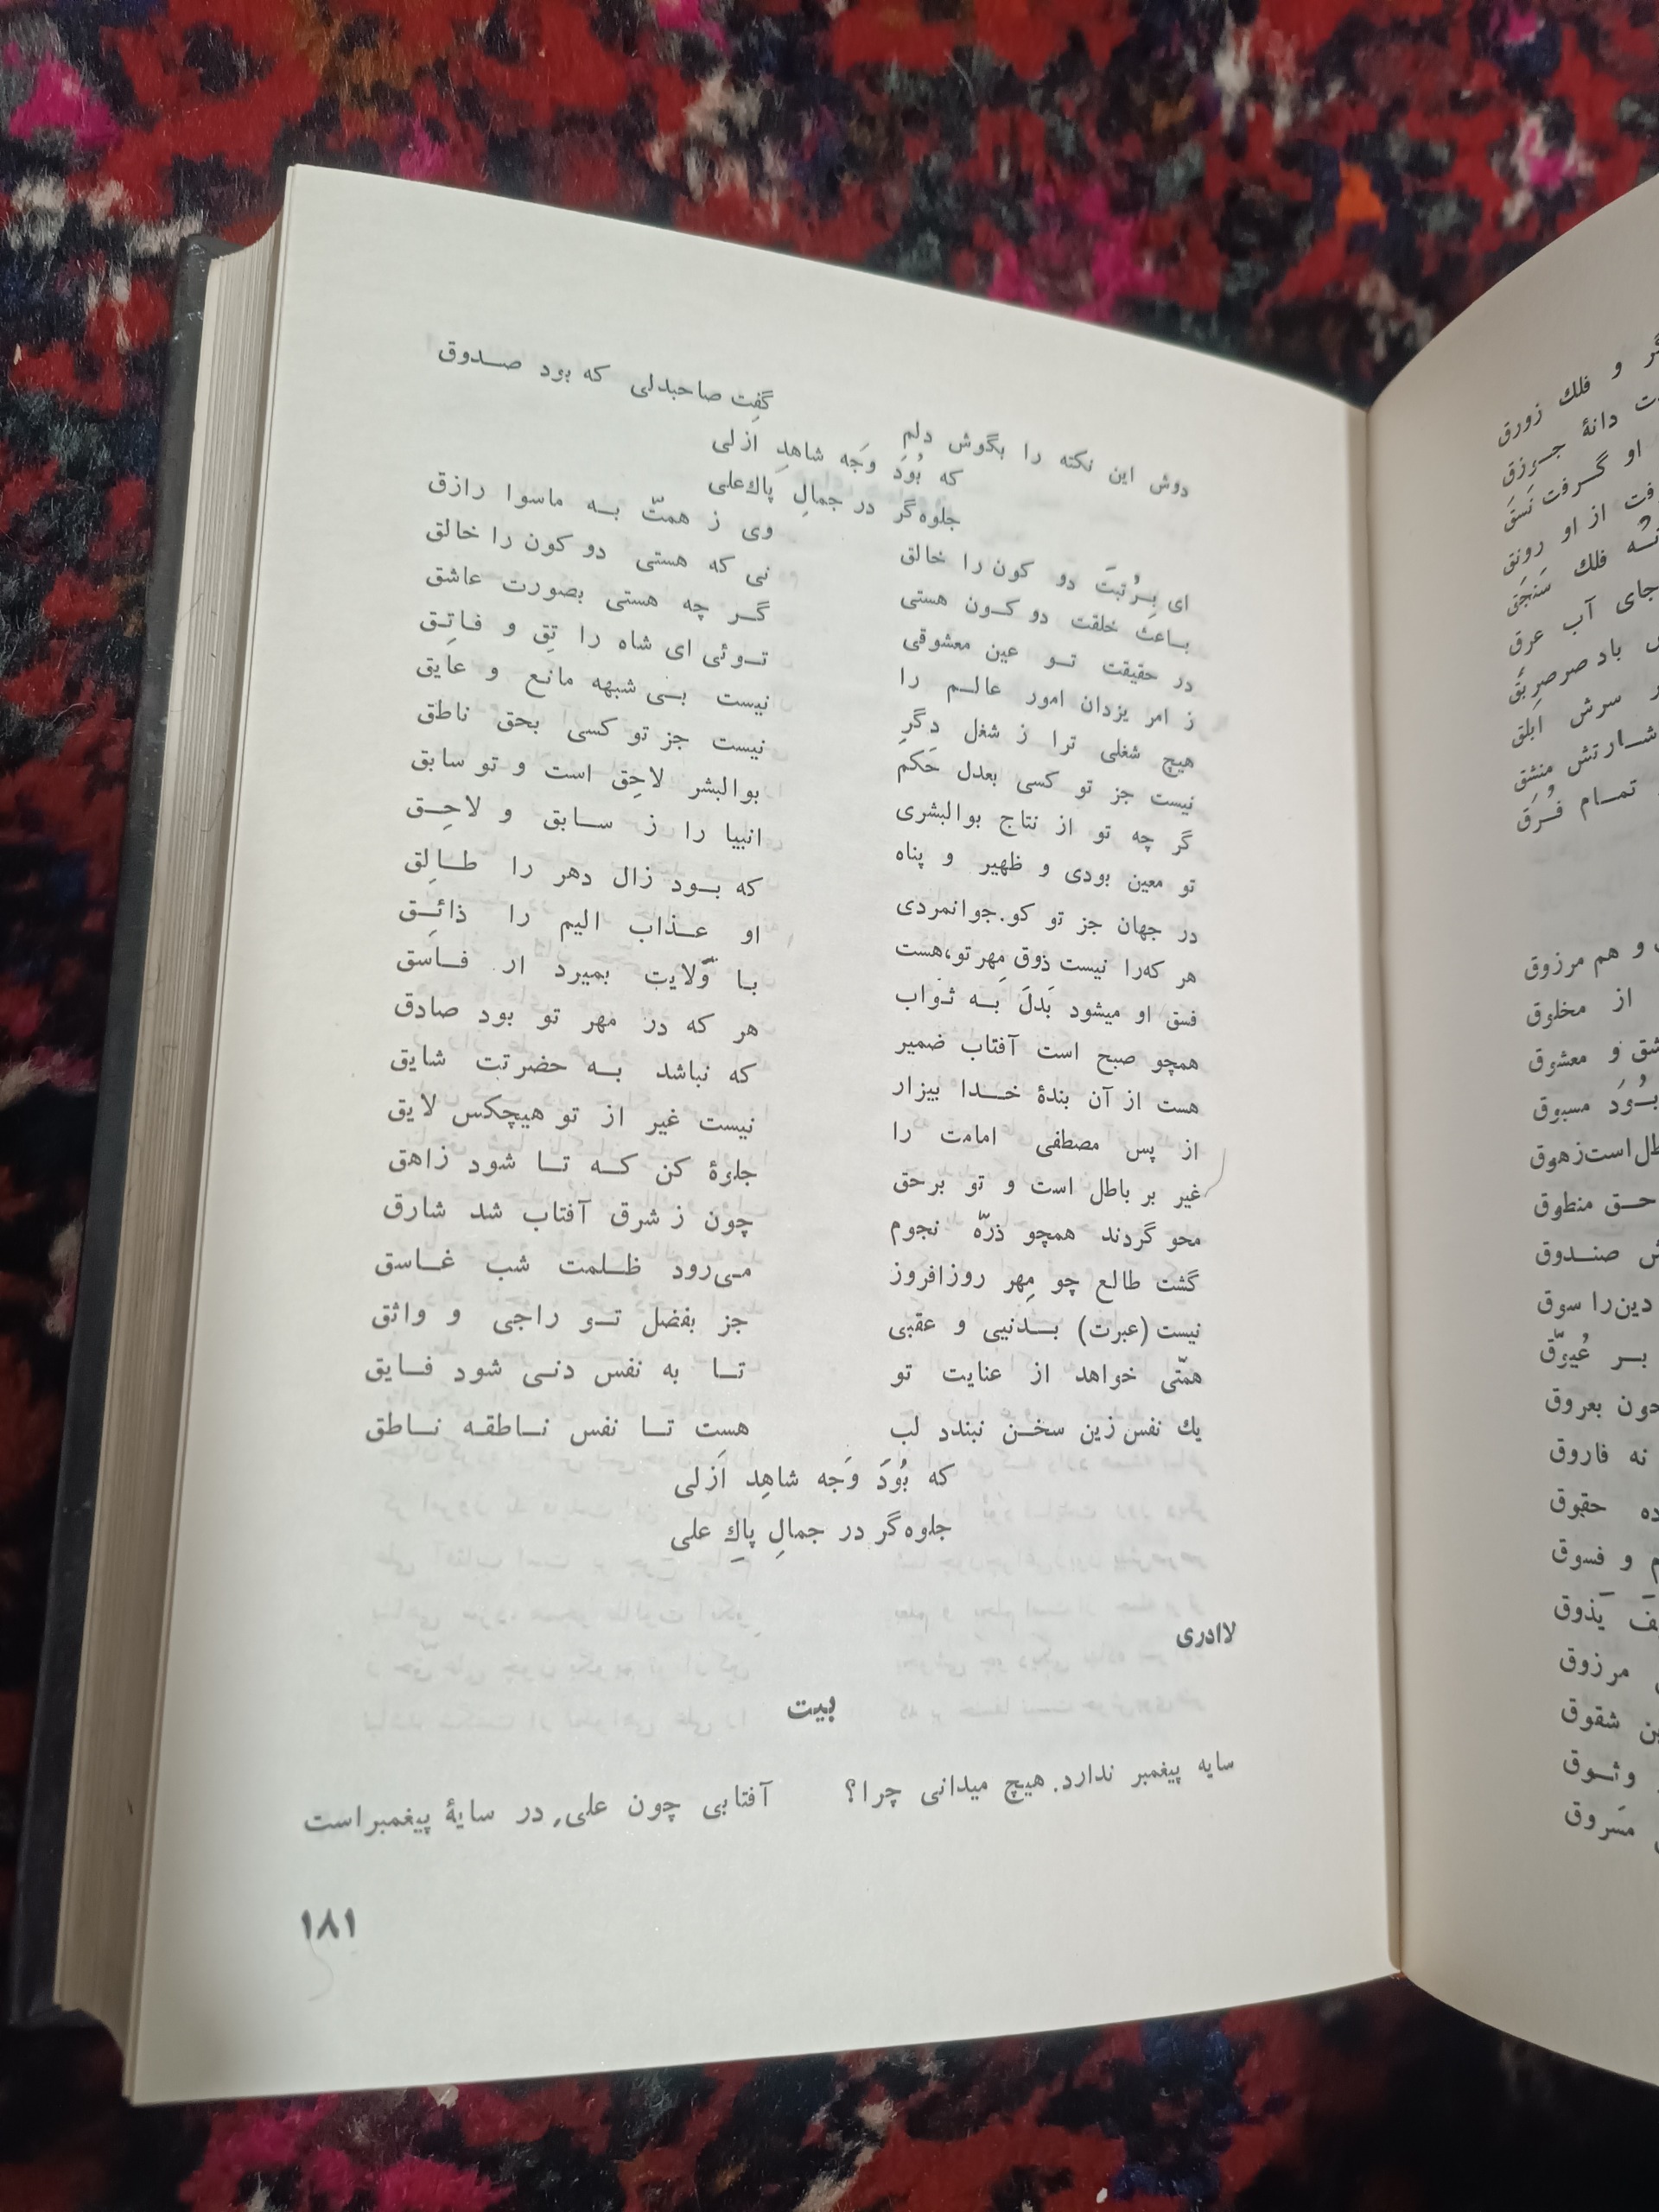 دوش این نکته را بگوش دلم گفت صاحبدلی که بود صدوق
که بُوَد وَجه شاهدِ اَزلی
جلوه‌گر در جمالِ پاك علی
ای بِرُتبَت دو کون را خالق وی ز همتّ به ماسوا رازق
باعث خلقت دو کون هستی نی که هستی دو کون را خالق
در حقیقت تو عین معشوقی گر چه هستی بصورت عاشق
ز امر یزدان امور عالم را توئی ای شاه را تِق و فاتِق
هیچ شغلی ترا ز شغل دگرِ نیست بی شبهه مانع و عایق
نیست جز تو کسی بعدل حَکَم نیست جز تو کسی بحق ناطق
گر چه تو از نتاج بوالبشری بوالبشر لاحِق است و تو سابق
تو معین بودی و ظهیر و پناه انبیا را ز سابق و لاحِق
در جهان جز تو کو.جوانمردی که بود زال دهر را طالِق
هر که‌را نیست ذوق مِهر تو،هست او عذاب الیم را ذائِق
فسق او میشود بَدلَ به ثواب با وَّلایت بمیرد ار فاسق
همچو صبح است آفتاب ضمیر هر که در مهر تو بود صادق
هست از آن بندهٔ خدا بیزار که نباشد به حضرتت شایق
از پس مصطفی امامت را نیست غیر از تو هیچکس لایق
غیر بر باطل است و تو برحق جلوهٔ کن که تا شود زاهق
محو گردند همچو ذرّه نجوم چون ز شرق آفتاب شد شارق
گشت طالع چو مِهر روزافروز می‌رود ظلمت شب غاسق
نیست (عبرت) بدنیی و عقبی جز بفضل تو راجی و واثق
همّتی خواهد از عنایت تو تا به نفس دنی شود فایق
یك نفس زین سخن نبندد لب هست تا نفس ناطقه ناطق
که بُوَد وَجه شاهِد اَزلی
جلوه‌گر در جمالِ پاكِ علی
لاادری
بیت
سایه پیغمبر ندارد. هیچ میدانی چرا؟ آفتابی چون علی, در سایهٔ پیغمبراست
۱۸۱
و فلك زورق
دانهٔ جوزق
او گرفت نَسَق
از او رونق
فلك سَنجَق
جای آب عرق
باد صرصر بَّق
سرش ابلق
منشق
تمام فُرِقَ
و هم مرزوق
از مخلوق
و معشوق
بُوَد مسبوق
است زهوق
حق منطوق
صندوق
دین‌را سوق
بر عُیوّق
بعروق
نه فاروق
حقوق
و فسوق
یَذوق
مرزوق
شقوق
وثوق
مَسروق